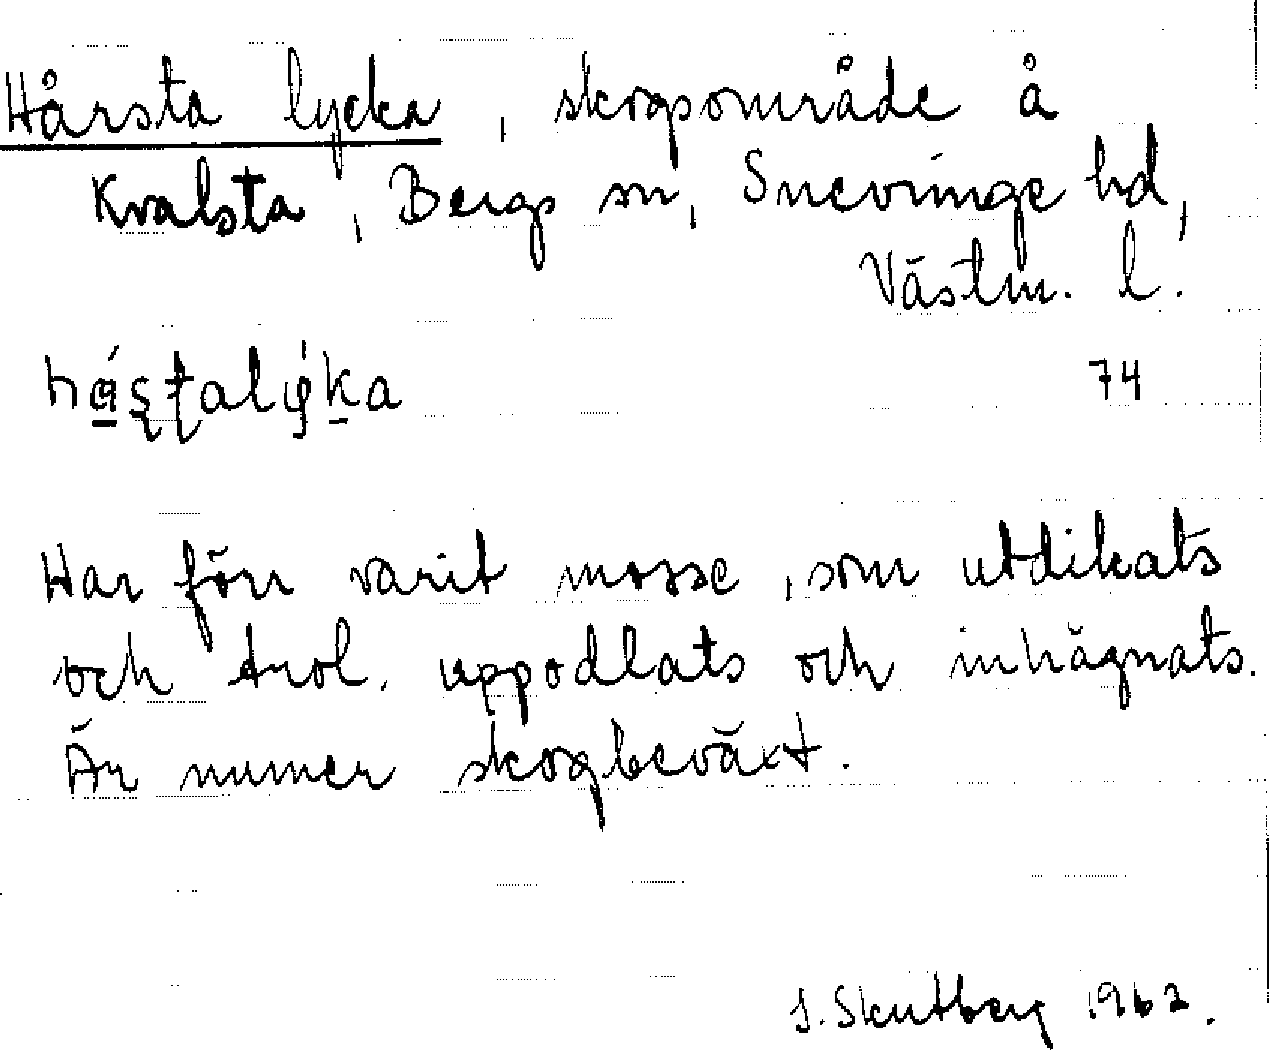 Hårsta lycka, skogsområde å
Kvalsta, Bergs sn, Snevringe hd,
Västm. l.
74
Har förr varit mosse, som utdikats
och trol. uppodlats och inhägnats.
Är numer skogbeväxt.
S. Skutberg 1962.